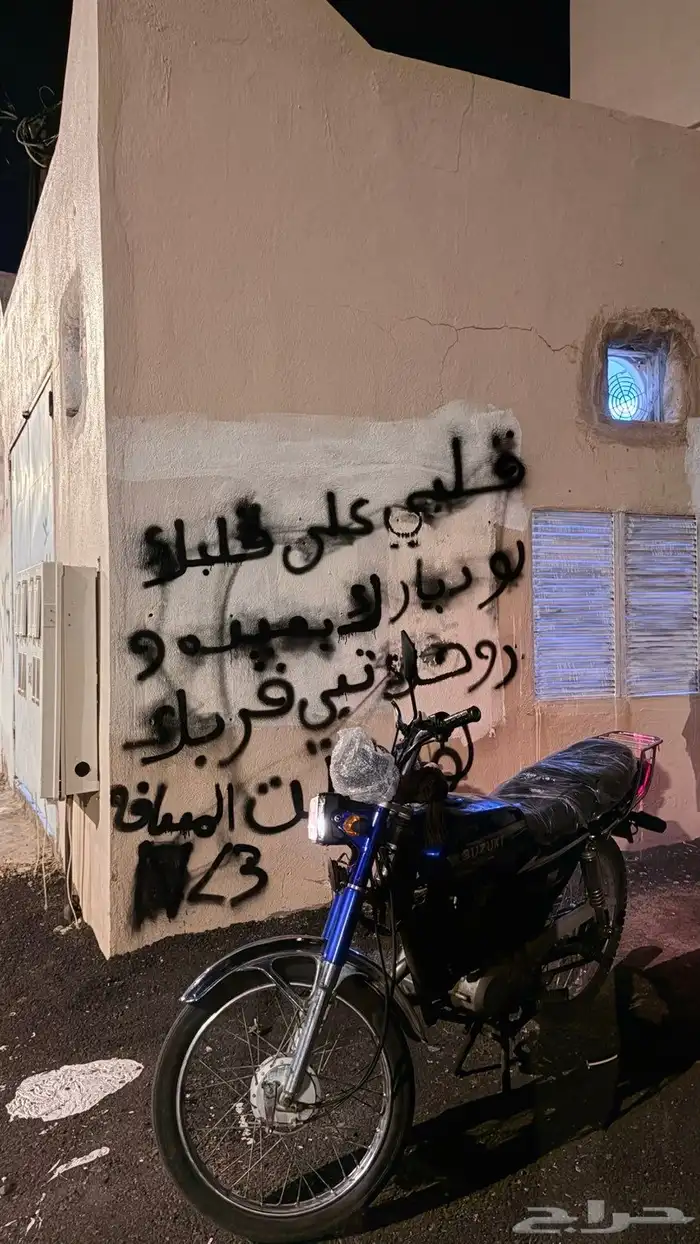 قلبي على قلبك
لو ديارك بعيده و
روحك تبي قربك
المسافه
<3
SUZUKI
حراج